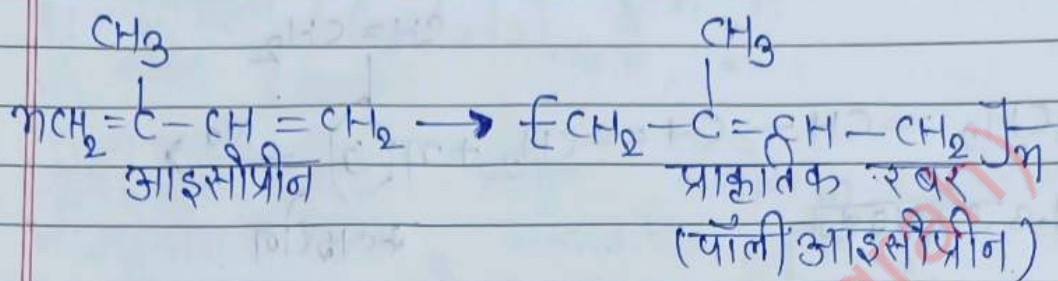 CH3 CH3
nCH2 = C - CH = CH2 → [CH2 - C = CH - CH2]n
आइसोप्रीन प्राकृतिक रबर
(पॉली आइसोप्रीन)